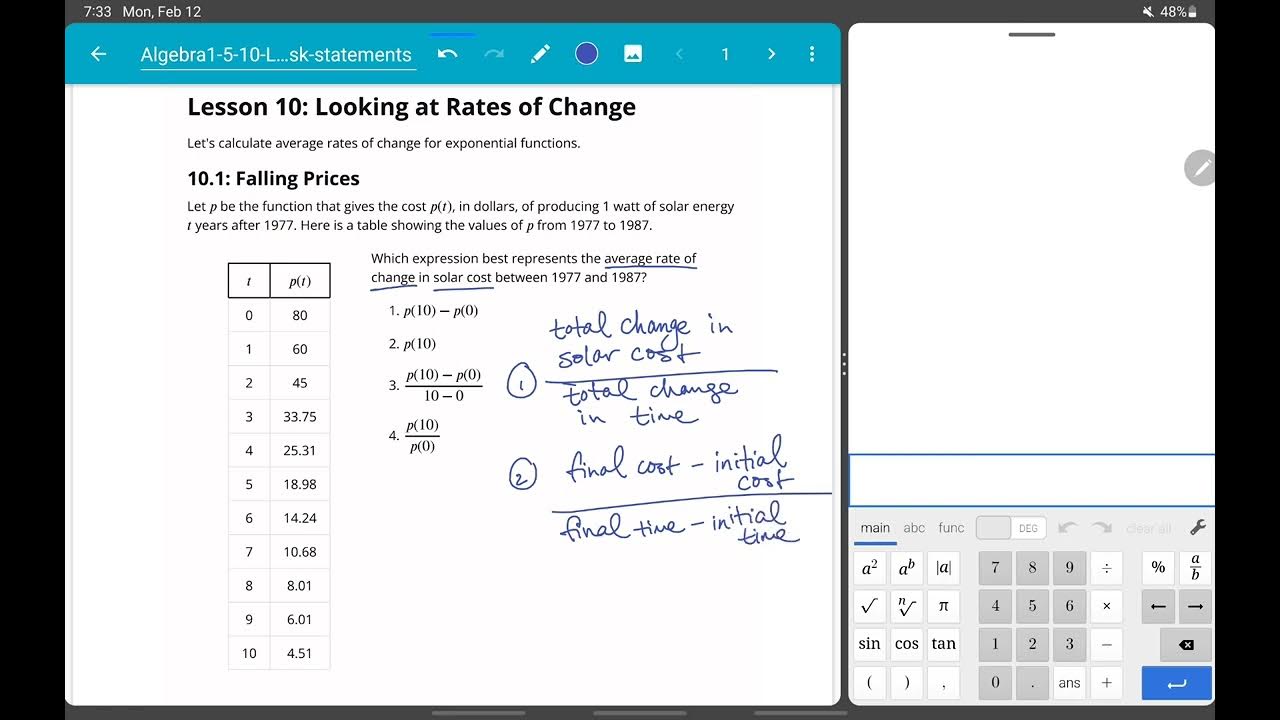 7:33 Mon, Feb 12
48%
Algebra1-5-10-L...sk-statements
1
Lesson 10: Looking at Rates of Change
Let's calculate average rates of change for exponential functions.
10.1: Falling Prices
Let p be the function that gives the cost p(t), in dollars, of producing 1 watt of solar energy
t years after 1977. Here is a table showing the values of p from 1977 to 1987.
t p(t)
0 80
1 60
2 45
3 33.75
4 25.31
5 18.98
6 14.24
7 10.68
8 8.01
9 6.01
10 4.51
Which expression best represents the average rate of
change in solar cost between 1977 and 1987?
1. p(10) – p(0)
2. p(10)
3. p(10) – p(0)
10 – 0
4. p(10)
p(0)
① total change in
solar cost
total change
in time
② final cost – initial
cost
final time – initial
time
main abc func DEG clear all
a² aᵇ |a| 7 8 9 ÷ % a/b
√ ⁿ√ π 4 5 6 × ← →
sin cos tan 1 2 3 −
( ) , 0 . ans +